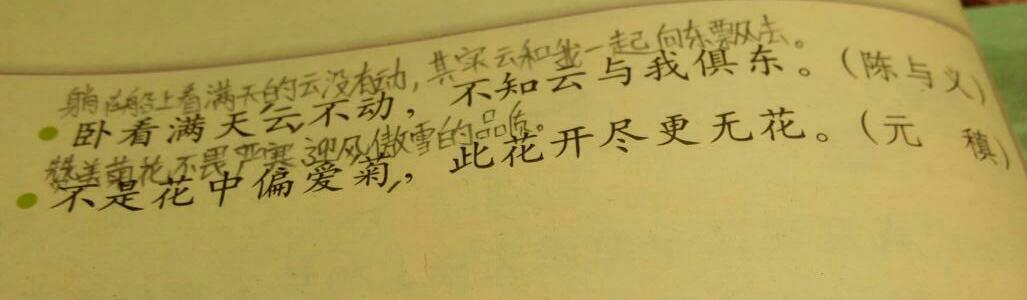 躺在船上看满天的云没有动,其实云和我一起向东飘去。
卧看满天云不动,不知云与我俱东。(陈与义)
赞美菊花不畏严寒、迎风傲雪的品质。
不是花中偏爱菊,此花开尽更无花。(元 稹)